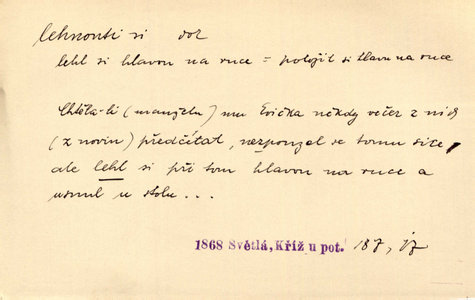 lehnouti si dok
lehl si hlavou na ruce = položil si hlavu na ruce
Chtěla-li (manželu) mu Evička někdy večer z nich
(z novin) předčítat, nezpouzel se tomu sice,
ale lehl si při tom hlavou na ruce a
usnul u stolu...
1868 Světlá, Kříž u pot. 187,